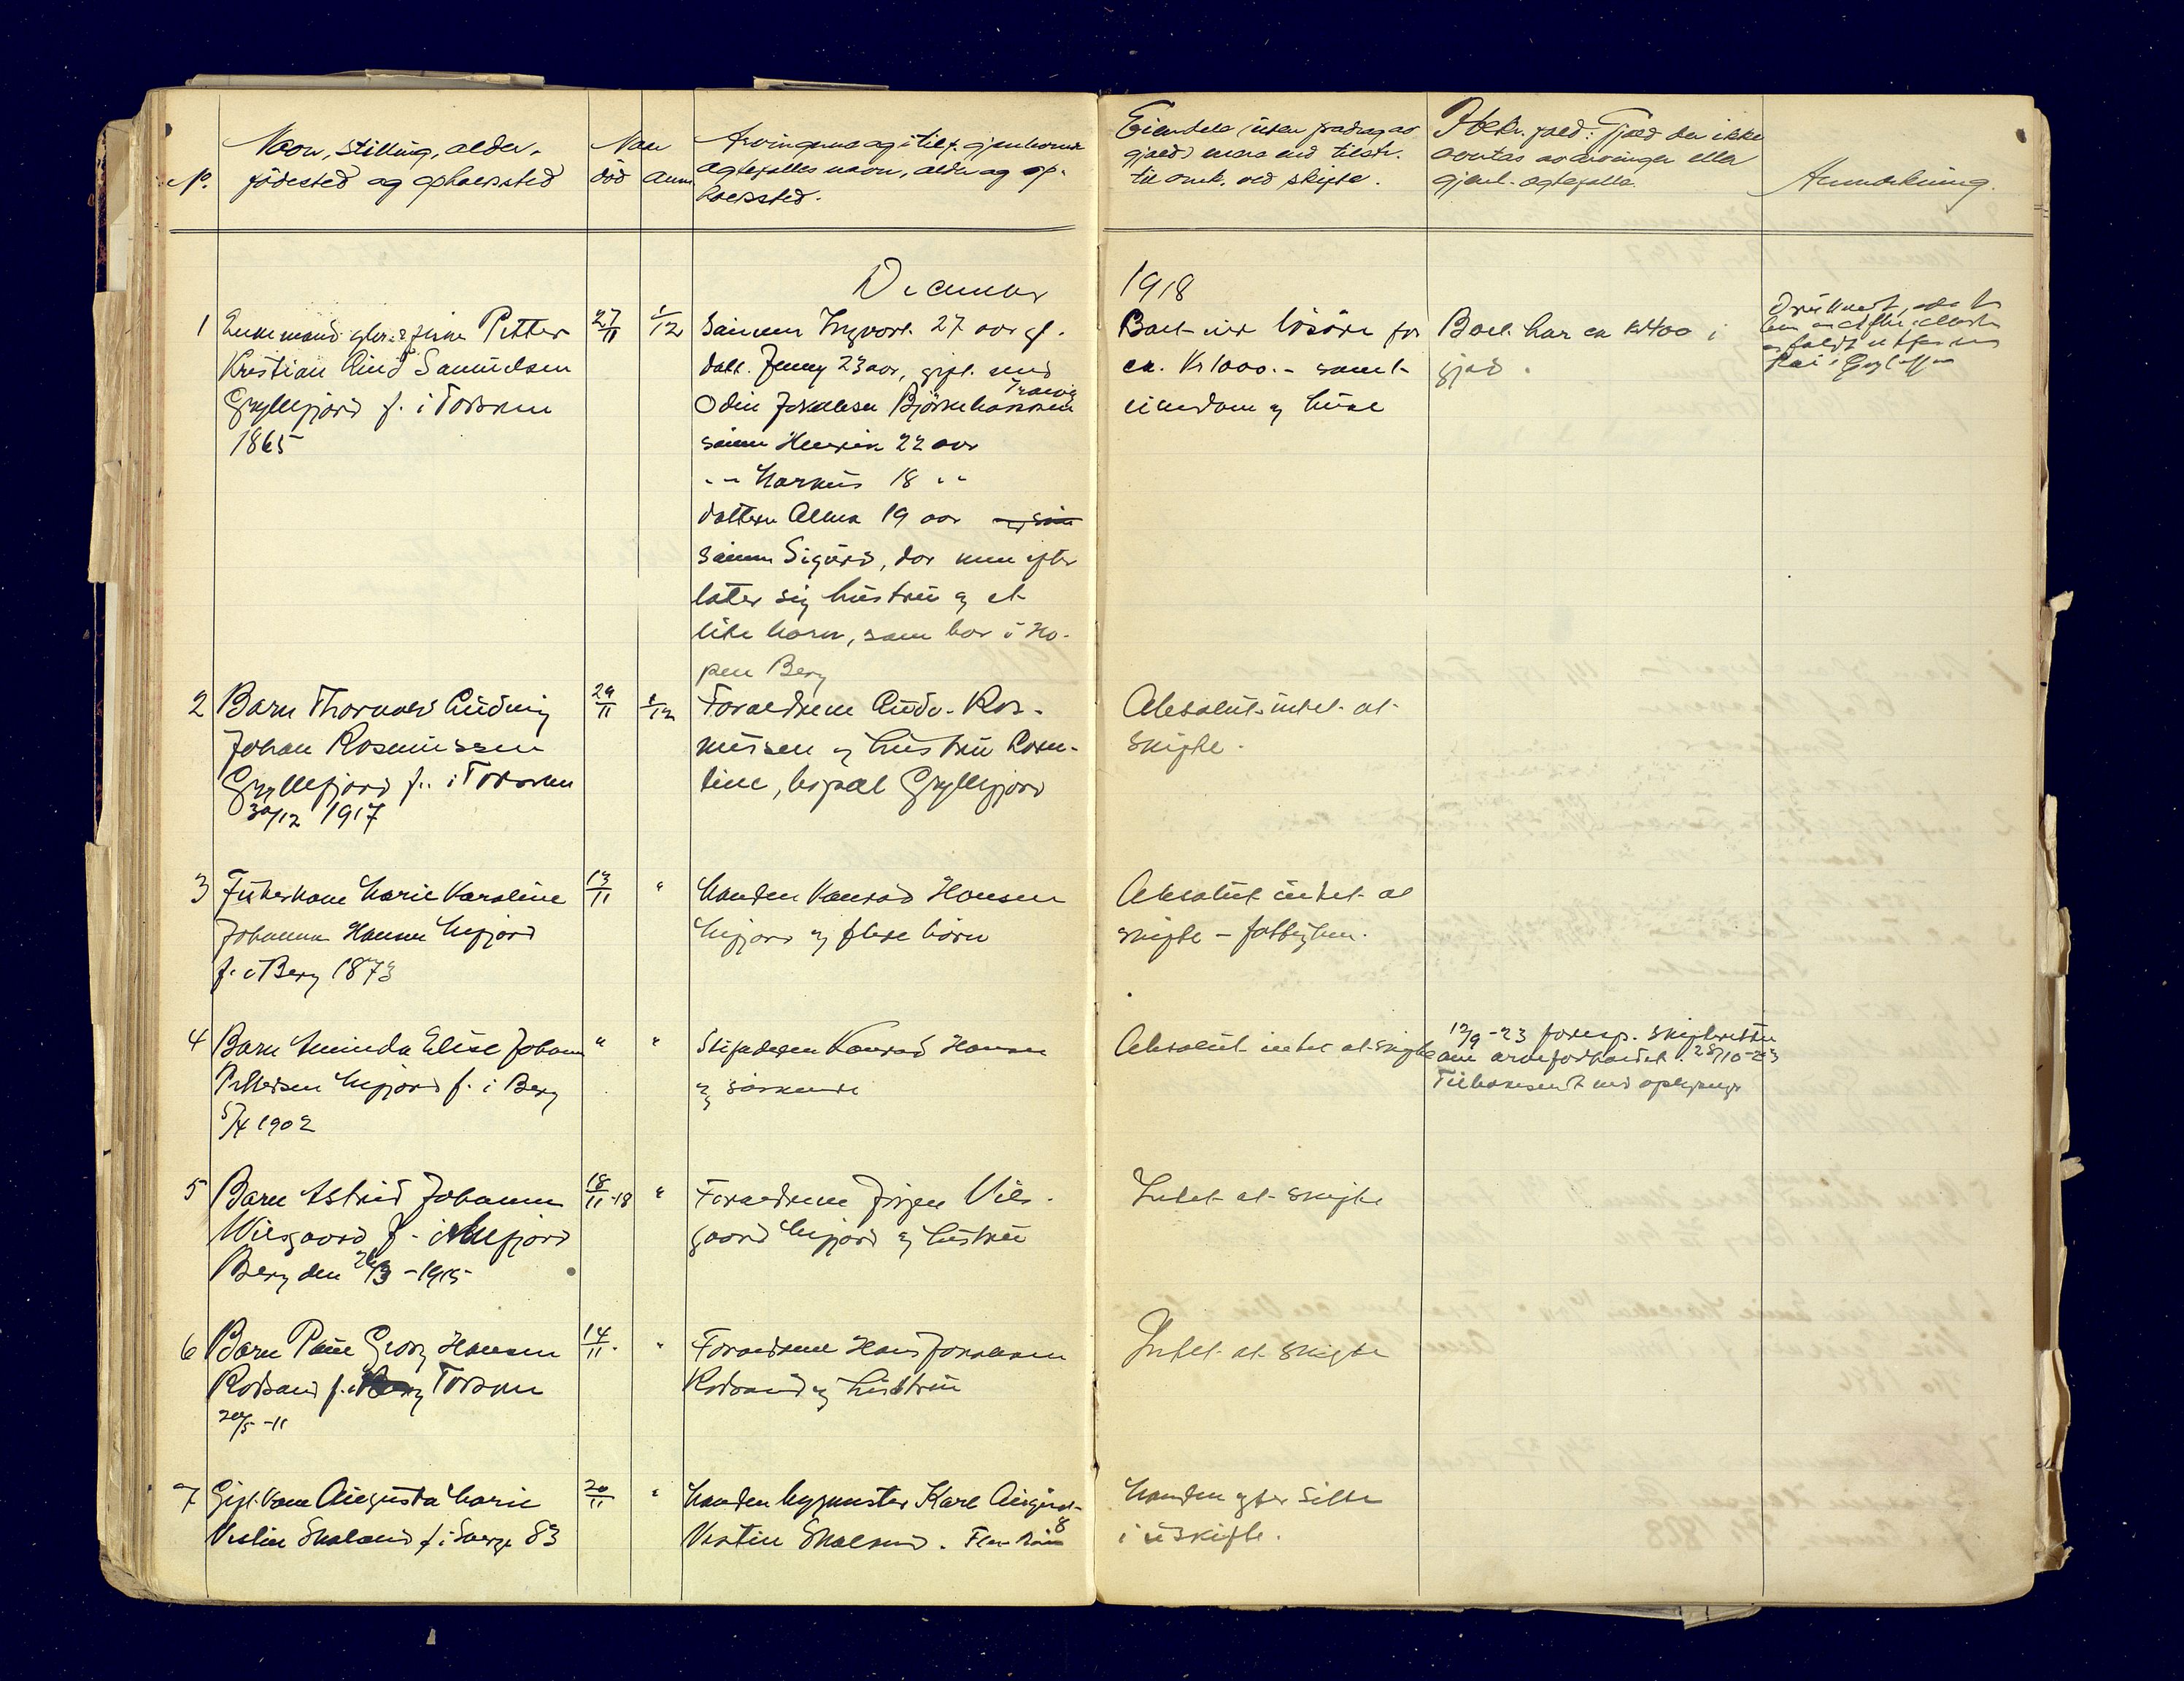 No.
Navn, stilling, alder,
födested og opholdssted
Naar
död anm.
Arvingerne og i tilf. gjenlevende
ægtefælles navn, alder og op-
holdssted.
Eiendele (uten fradrag av
gjæld) mere end tilstr.
til omk. ved skifte.
gjæld: Gjæld der ikke
overtas av arvinger eller
gjenl. ægtefælle.
Anmerkning.
December
1918
1 Enkemand Petter
Kristian Samuelsen
Gryllefjord f. i Torsken
1865
27/11
2/12
Sönnen Ingvart 27 aar gl.
datt. Jenny 23 aar, gift med
Odin Johansen
sönn Henrik 22 aar
" Markus 18 "
datteren Alma 19 aar
sönnen Sigurd, der nu efter
later sig hustru og et
lite barn, som bor i Ho-
pen Berg
Boet eier lösöre for
ca. Kr 1000.- samt
eiendom og huse
Boet har ca kr 400 i
gjæld.
2 Barn Thorvald Ludvig
Johan Rasmussen
Gryllefjord f. i Torsken
30/12 1917
29/11
2/12
Forældrene Ludv. Ras-
mussen og hustru
Gryllefjord
Absolut intet at
skifte.
3 Fiskerkone Marie Karoline
Johanna Hansen Mefjord
f. i Berg 1873
13/11
"
Manden Konrad Hansen
Mefjord og flere börn
Absolut intet at
skifte - fattiglem.
4 Barn Aminda Elise Johanne
Pettersen Mefjord f. i Berg
5/4 1902
"
"
Stifaderen Konrad Hansen
og söskende
Absolut intet at skifte
12/9-23 foresp. skifteretten
om arveforholdet. 25/10-23
Tilbakesendt med
5 Barn Astrid Johanne
Wilsgaard f. i Mefjord
Berg den 1915
18/11-18
"
Forældrene Jörgen Vils-
gaard Mefjord og hustru
Intet at skifte
6 Barn Paul Georg Hansen
Rödsand f. i Torsken
20/5 -11
14/11.
"
Forældrene Hans Johansen
Rödsand og hustru
Intet at skifte
7 Gift kone Augusta Marie
Vestin Skaland f. i Sverge 83
20/11
"
Manden bygmester Karl August
Vestin Skaland. Flere börn
8
Manden sitter
i uskifte.